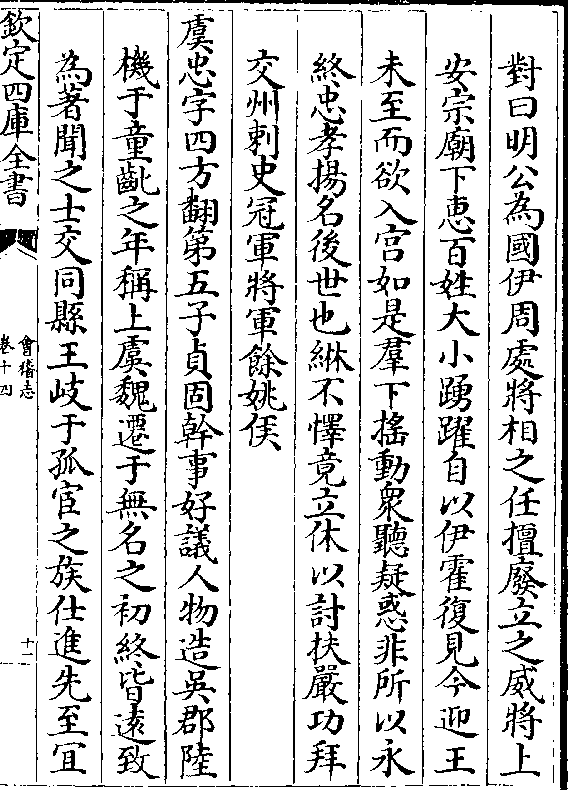 對曰明公為國伊周處將相之任擅廢立之威將上
安宗廟下惠百姓大小踴躍自以伊霍復見今迎王
未至而欲入宮如是羣下搖動衆聽疑惑非所以永
終忠孝揚名後世也綝不懌竟立休以討扶嚴功拜
交州刺史冠軍將軍餘姚侯
虞忠字四方翻第五子貞固幹事好議人物造吳郡陸
機于童齔之年稱上虞魏遷于無名之初終皆遠致
為著聞之士交同縣王岐于孤宦之族仕進先至冝
欽定四庫全書
會稽志
卷十四
十一